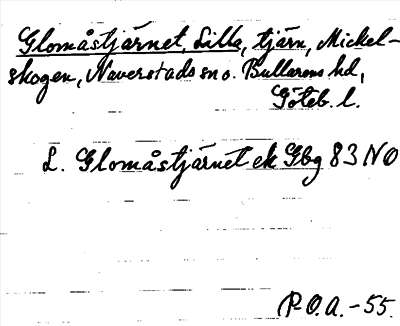 Glomåstjärnet, Lilla, tjärn, Mickel-
skogen, Naverstads sn o. Bullarens hd,
Göteb. l.
L. Glomåstjärnet ek Gbg 83 NO
P-O.A. -55.